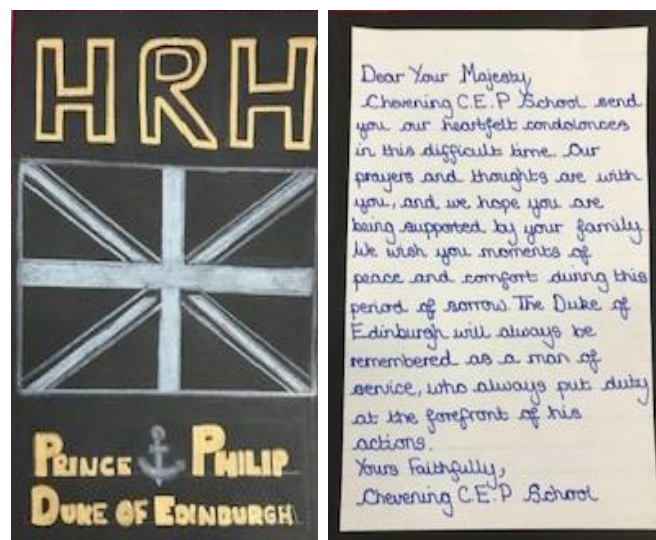 HRH
PRINCE PHILIP
DUKE OF EDINBURGH
Dear Your Majesty,
Chevening C.E.P School send
you our heartfelt condolonces
in this difficult time. Our
prayers and thoughts are with
you, and we hope you are
being supported by your family
We wish you moments of
peace and comfort during this
period of sorrow. The Duke of
Edinburgh will always be
remembered as a man of
service, who always put duty
at the forefront of his
actions.
Yours Faithfully,
Chevening C.E.P School